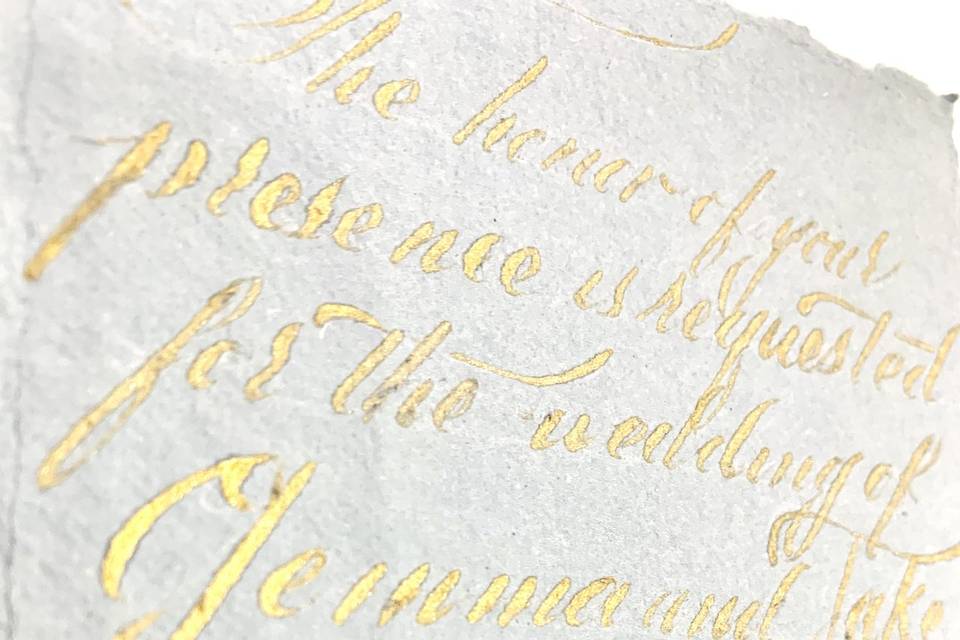 The honor of your
presence is requested
for the wedding of
Jemma and Jake